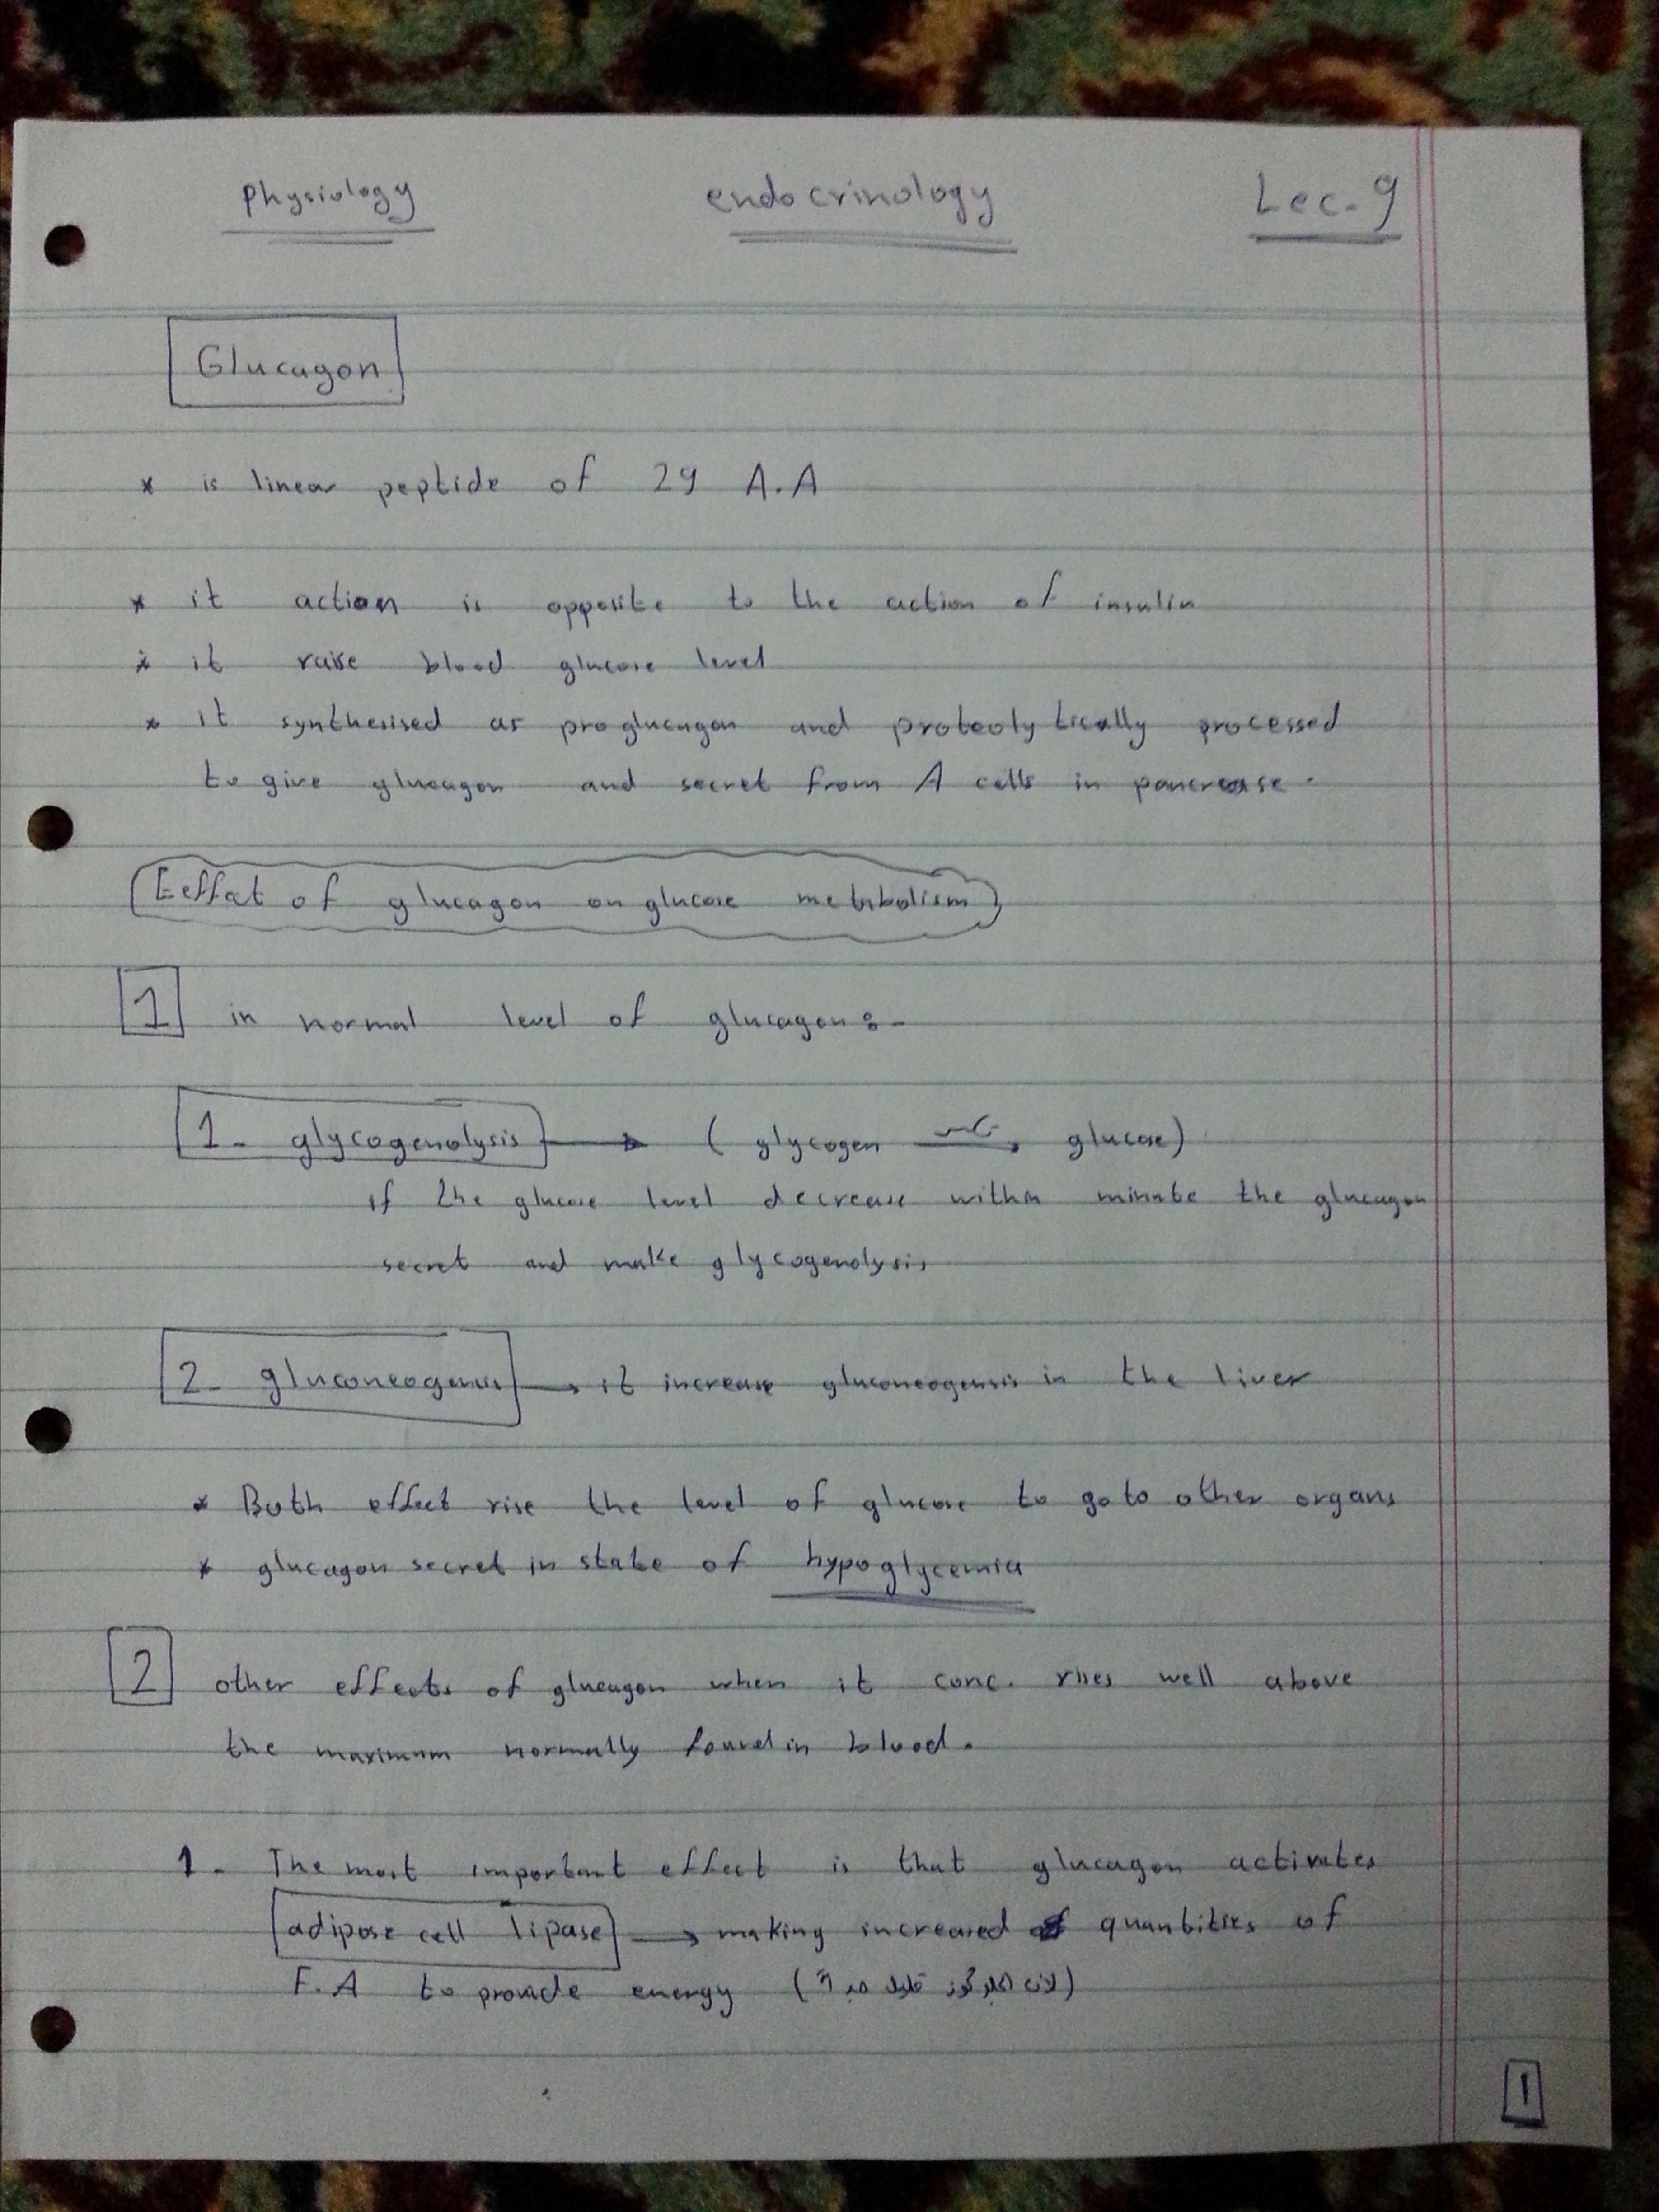 physiology endocrinology Lec. 9
Glucagon
* is linear peptide of 29 A.A
* it action is opposite to the action of insulin
* it raise blood glucose level
* it synthesised as proglucagon and proteolytically processed
to give glucagon and secret from A cells in pancrease.
Eeffect of glucagon on glucose metabolism
1 in normal level of glucagon:-
1- glycogenolysis → ( glycogen → glucose)
if the glucose level decrease within minute the glucagon
secret and make glycogenolysis
2- gluconeogenesis → it increase gluconeogensis in the liver
* Both effect rise the level of glucose to go to other organs
* glucagon secret in state of hypoglycemia
2 other effects of glucagon when it conc. rises well above
the maximum normally found in blood.
1- The most important effect is that glucagon activates
adipose cell lipase → making increased quantities of
F.A to provide energy (لان الكلوكوز قليل جدا)
1